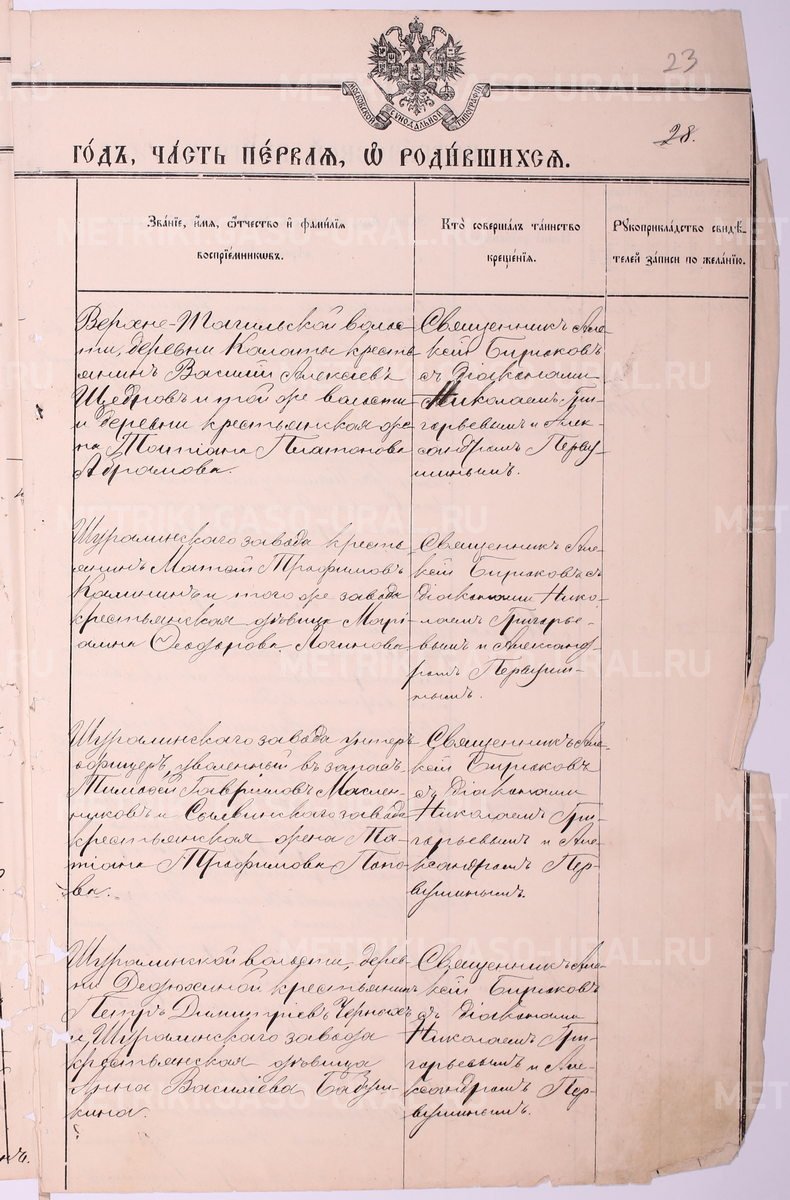 23
МОСКОВСКОЙ СѴНОДАЛЬНОЙ ТИПОГРАФІИ
28.
ГО́ДЪ, ЧА́СТЬ ПЕ́РВАЯ, Ѽ РОДИ́ВШИХСЯ.
Зва́нїе, и́мя, ѻ҆́тчество и҆ фамі́лїя
воспрїе́мникѡвъ.
Кто̀ соверша́лъ та́инство
креще́нїя.
Рꙋкоприкла́дство свидѣ́-
телей за́писи по жела́нїю.
Верхне-Тагильской волос-
ти, деревни Колаты кресть-
янинъ Василій Алексѣевъ
Щедровъ и той же волости
и деревни крестьянская же-
на Татіана Платонова
Абрамова.
Священникъ Але-
ксій Бирюковъ
съ діаконами
Николаемъ Гри-
горьевымъ и Алек-
сандромъ Перву-
шинымъ.
Шуралинскаго завода кресть-
янинъ Матѳей Трофимовъ
Калининъ и того же завода
крестьянская дѣвица Марі-
амна Ѳеодорова Логинова
Священникъ Але-
ксій Бирюковъ съ
діаконами Нико-
лаемъ Григорье-
вымъ и Александ-
ромъ Первушин-
нымъ.
Шуралинскаго завода унтеръ-
офицеръ, уволенный въ запасъ
Тимоѳей Гавриловъ Маслен-
никовъ и Сылвинскаго завода
крестьянская жена Та-
тіана Трофимова Попо-
ва.
Священникъ Але-
ксій Бирюковъ
съ діаконами
Николаемъ Гри-
горьевымъ и Але-
ксандромъ Пер-
вушинымъ.
Шуралинской волости, дерев-
ни Дедюхиной крестьянинъ
Петръ Димитріевъ Черныхъ
и Шуралинскаго завода
крестьянская дѣвица
Анна Василіева Бабуш-
кина.
Священникъ Але-
ксій Бирюковъ
съ діаконами
Николаемъ Гри-
горьевымъ и Але-
ксандромъ Пер-
вушинымъ.
METRIKI.GASO-URAL.RU